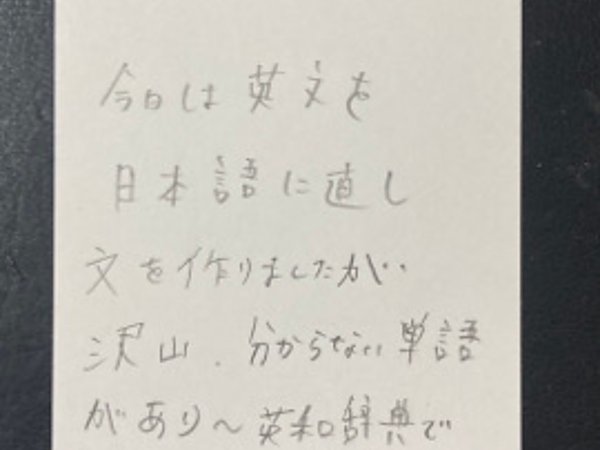 今日は英文を
日本語に直し
文を作りましたが‥
沢山、分からない単語
があり〜英和辞典で